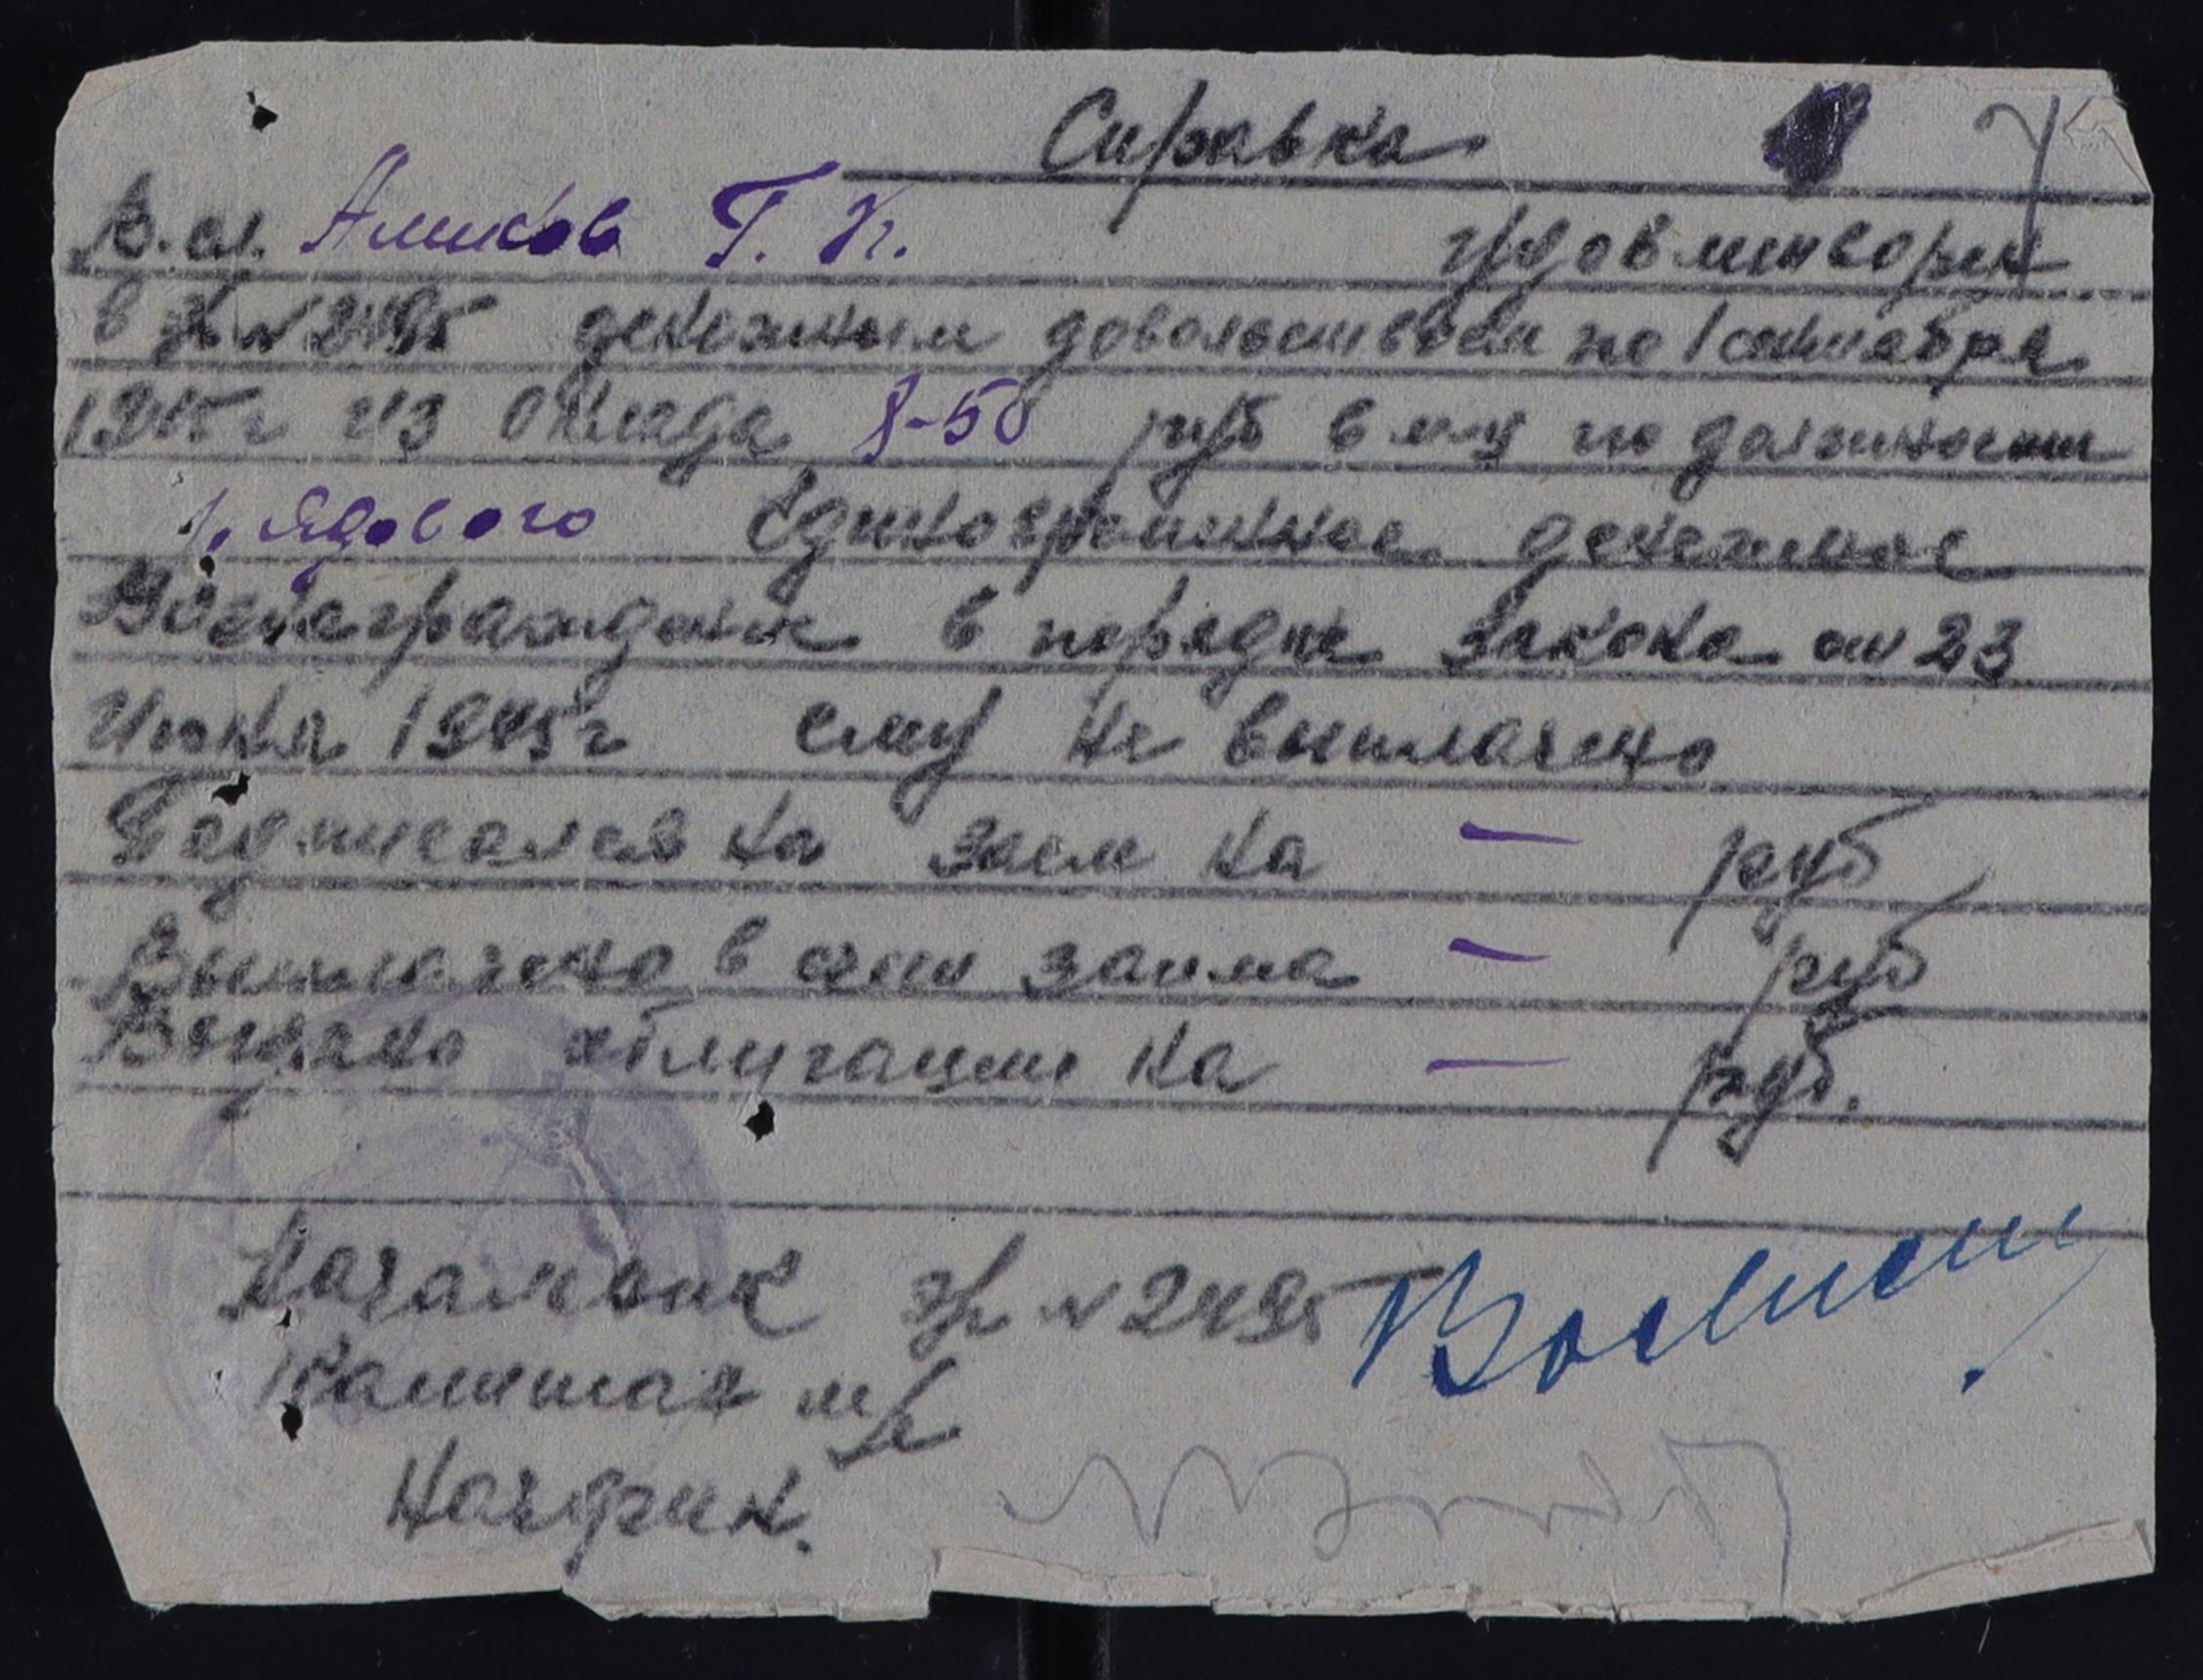 Справка
В. сл. Аликов Г. К. удовлетворен
в эг № 2495 денежным довольствием по 1 сентября
1945 г из оклада 8-50 руб в м-ц по должности
рядового Единовременное денежное
Вознаграждение в порядке Закона от 23
Июня 1945 г ему не выплачено
Подписался на заем на — руб
Выплачено в счет займа — руб
Выдано облигации на — руб.
Начальник эг № 2495
Капитан м/с
Начфин.